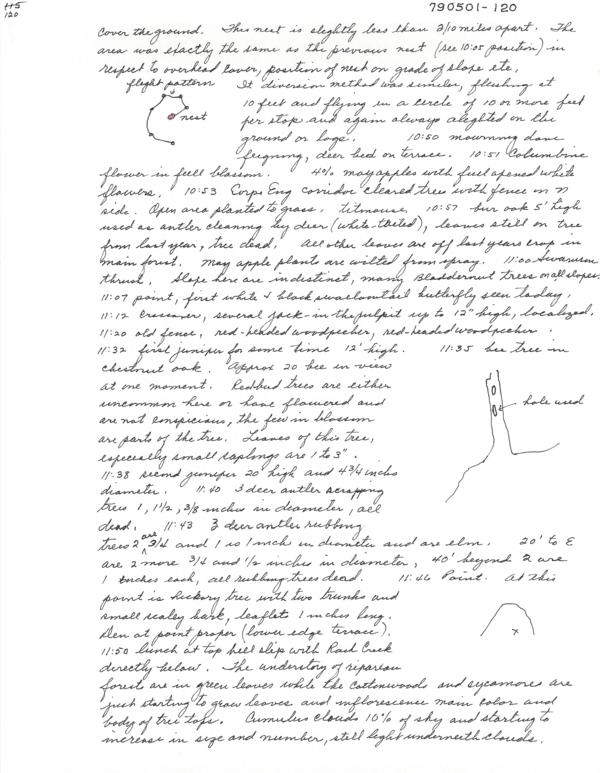 H5
120
790501-120
cover the ground. This nest is slightly less than 2/10 miles apart. The
area was exactly the same as the previous nest (see 10:05 position) in
respect to overhead cover, position of nest on grade of slope etc.
flight pattern It diversion method was similar, flushing at
nest
10 feet and flying in a circle of 10 or more feet
per stop and again always alighted on the
ground or logs. 10:50 mourning dove
feigning, deer bed on terrace. 10:51 Columbine
flower in full blossom. 40% may apples with full opened white
flowers. 10:53 Corps Eng corridor cleared tree with fence on N
side. Open area planted to grass. titmouse, 10:57 bur oak 5' high
used as antler cleaning by deer (white-tailed), leaves still on tree
from last year, tree dead. All other leaves are off last years crop in
main forest. May apple plants are wilted from spray. 11:00 Swainson
thrush. Slope here are indistinct, many Bladdernut trees on all slopes.
11:07 point, first white & black swallowtail butterfly seen today.
11:12 Crossover, several jack-in-the-pulpit up to 12" high, localized.
11:20 old fence, red-headed woodpecker, red-headed woodpecker.
11:32 first juniper for some time 12' high. 11:35 bee tree in
chestnut oak. Approx 20 bee in view
at one moment. Redbud trees are either
hole used
uncommon here or have flowered and
are not conspicious, the few in blossom
are parts of the tree. Leaves of this tree,
especially small saplongs are 1 to 3".
11:38 second juniper 20' high and 4 3/4 inchs
diameter. 11:40 3 deer antler scrapping
trees 1, 1 1/2, 3/8 inches in diameter, all
dead. 11:43 3 deer antler rubbing
trees 2 are 3/4 and 1 is 1 inch in diameter and are elm. 20' to E
are 2 more 3/4 and 1/2 inches in diameter, 40' beyond 2 are
1 inches each, all rubbing trees dead. 11:46 Point. At this
point is hickory tree with two trunks and
small scaley bark, leaflets 1 inches long.
Den at point proper (lower edge terrace).
x
11:50 lunch at top hill slip with Rock Creek
directly below. The understory of riparean
forests are in green leaves while the cottonwoods and sycamores are
just starting to grow leaves and inflorescence main color and
body of tree tops. Cumulus clouds 10% of sky and starting to
increase in size and number, still light underneith clouds.